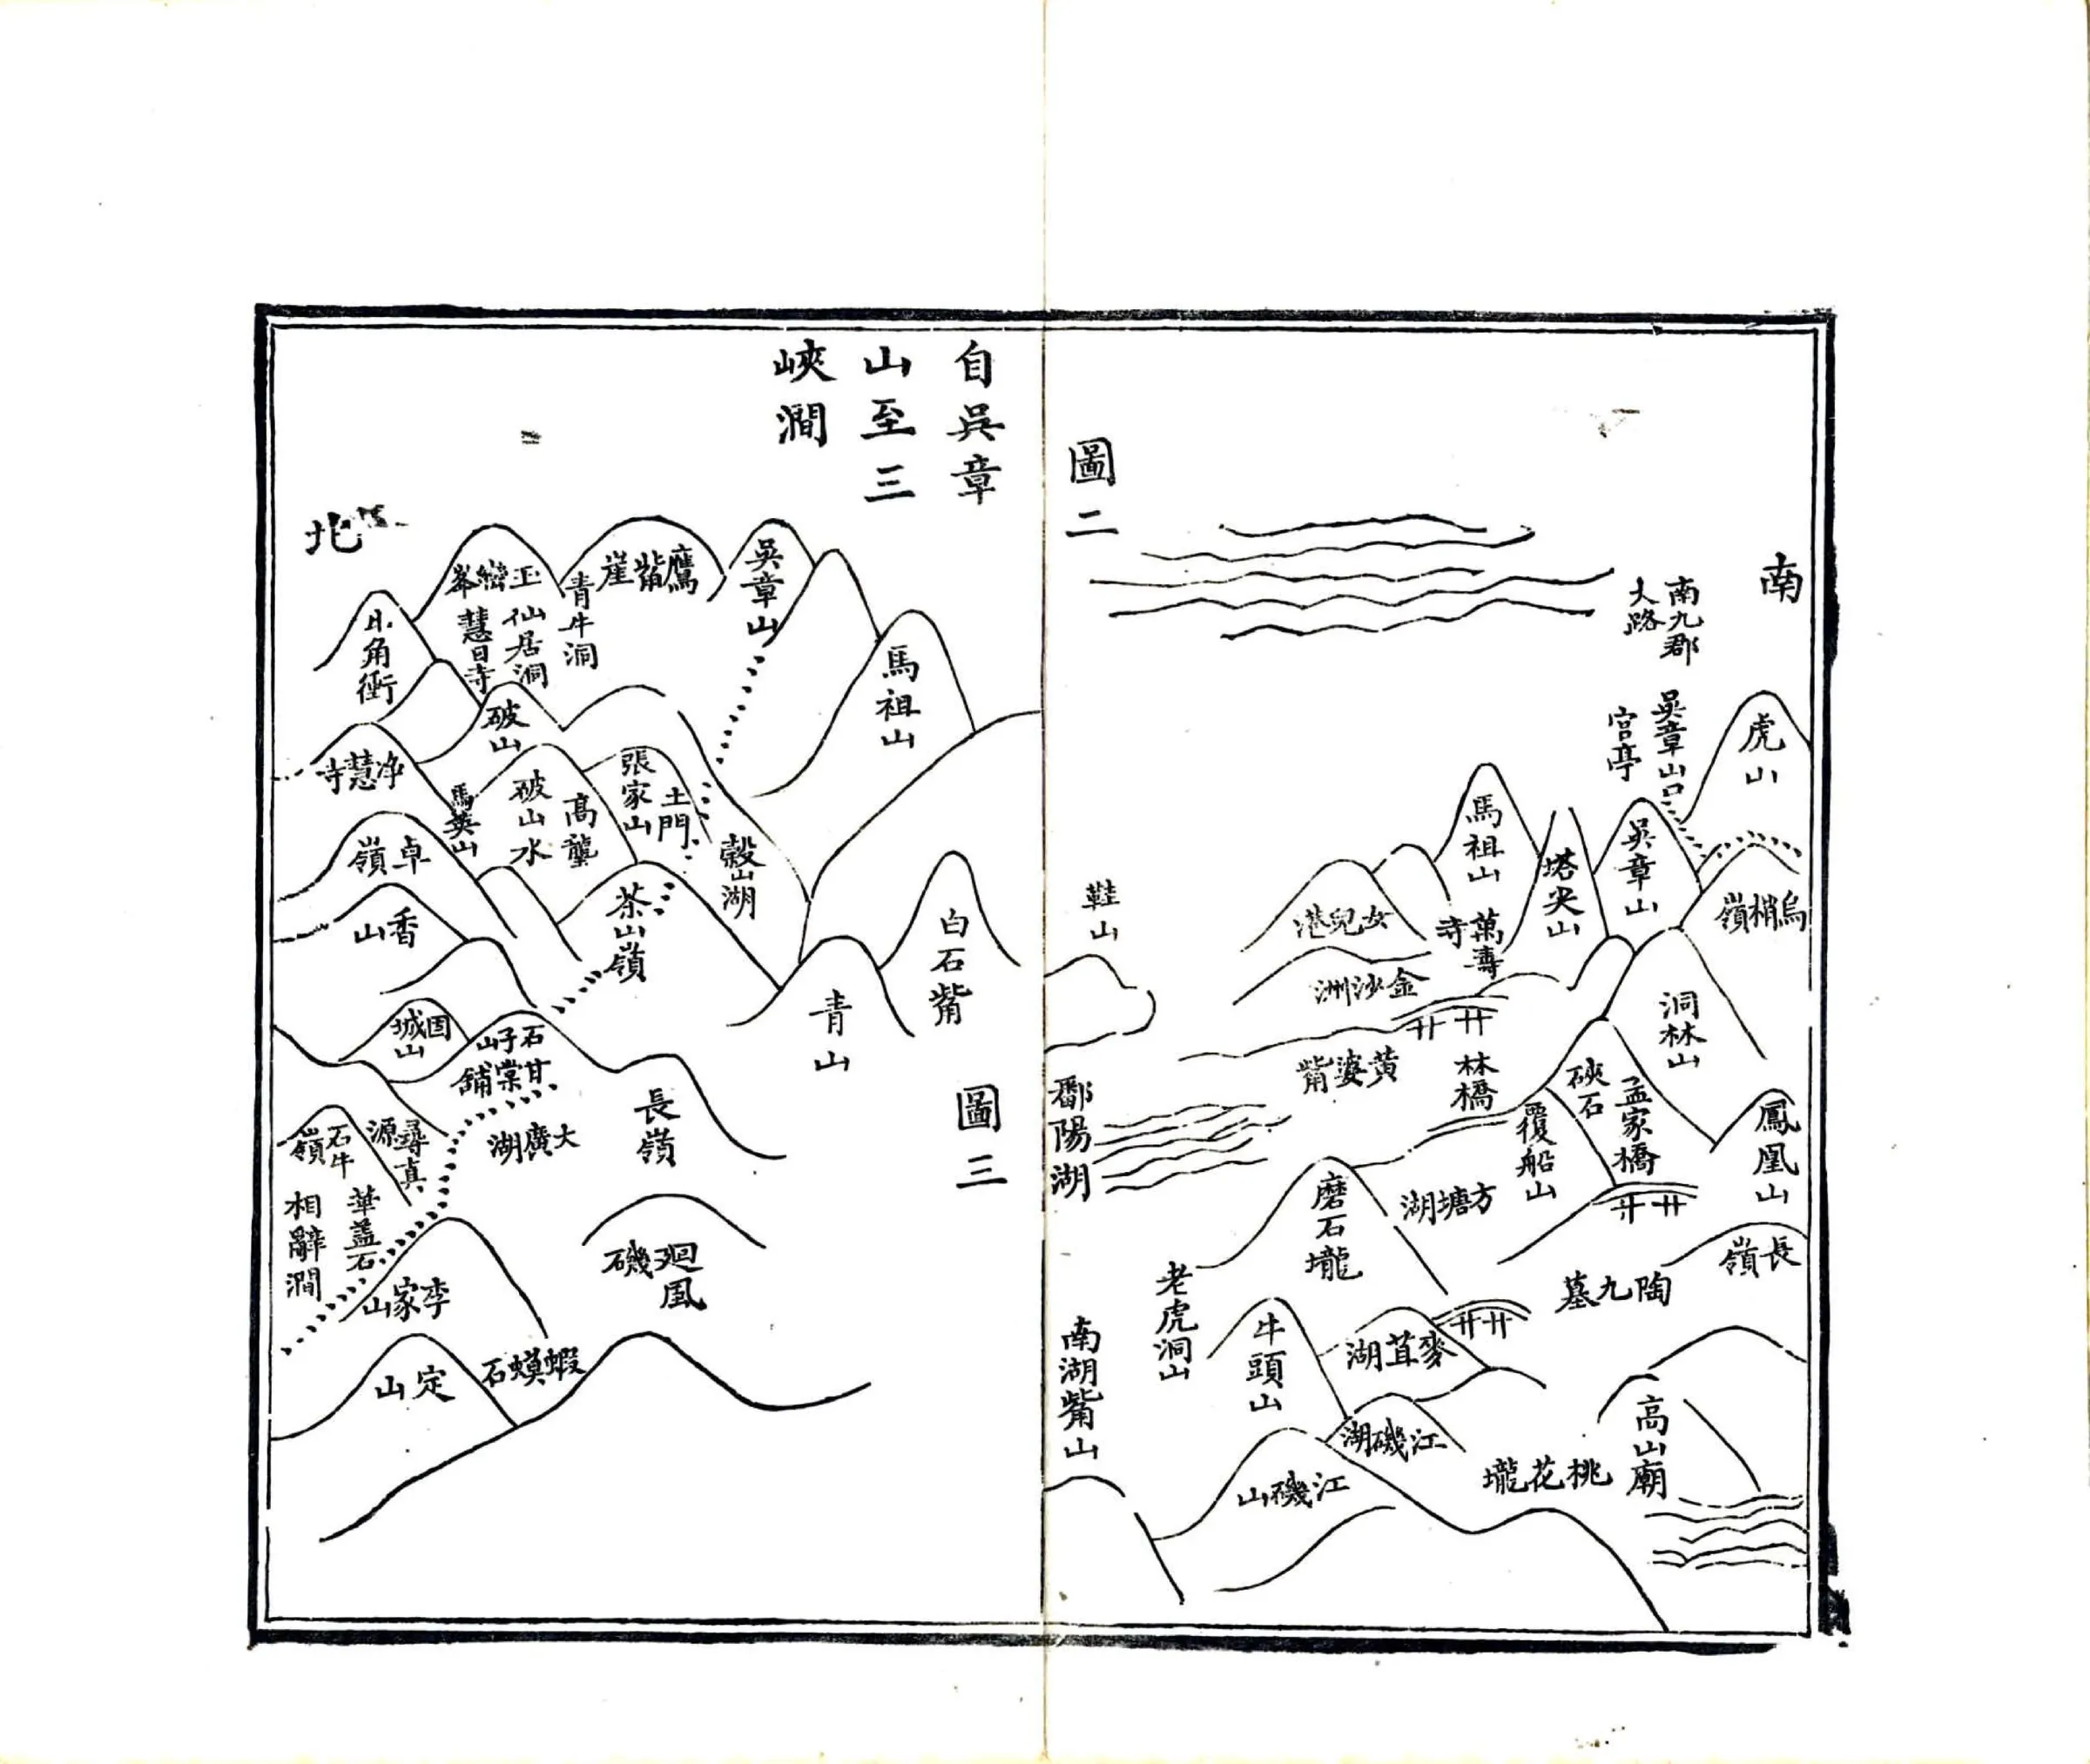 圖二
南
南九郡
大路
虎山
吳章山口
宮亭
烏梢嶺
吳章山
塔尖山
馬祖山
萬壽
寺
女兒港
金沙洲
鞋山
洞林山
硤石
孟家橋
覆船山
林橋
黄婆觜
鄱陽湖
鳳凰山
長嶺
陶九墓
方塘湖
磨石壠
老虎洞山
牛頭山
麥苴湖
江磯湖
江磯山
南湖觜山
桃花壠
高山廟
自吳章
山至三
峽澗
圖三
北
吳章山
馬祖山
鷹觜崖
青牛洞
玉巒峯
仙居洞
慧日寺
角衝
破山
净慧寺
張家山
土門
高壟
破山水
馬英山
卓嶺
香山
茶山嶺
穀山湖
白石觜
青山
固城山
石子山
甘棠舖
大廣湖
長嶺
尋真
源
石牛
嶺
華蓋石
相辭澗
李家山
廻風
磯
蝦蟆石
定山